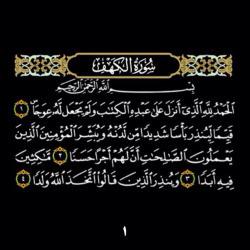 سُورَةُ الكَهْفِ
بِسْمِ اللَّهِ الرَّحْمَٰنِ الرَّحِيمِ
الْحَمْدُ لِلَّهِ الَّذِي أَنْزَلَ عَلَىٰ عَبْدِهِ الْكِتَابَ وَلَمْ يَجْعَلْ لَهُ عِوَجًا ١
قَيِّمًا لِيُنْذِرَ بَأْسًا شَدِيدًا مِنْ لَدُنْهُ وَيُبَشِّرَ الْمُؤْمِنِينَ الَّذِينَ
يَعْمَلُونَ الصَّالِحَاتِ أَنَّ لَهُمْ أَجْرًا حَسَنًا ٢ مَاكِثِينَ
فِيهِ أَبَدًا ٣ وَيُنْذِرَ الَّذِينَ قَالُوا اتَّخَذَ اللَّهُ وَلَدًا ٤
١